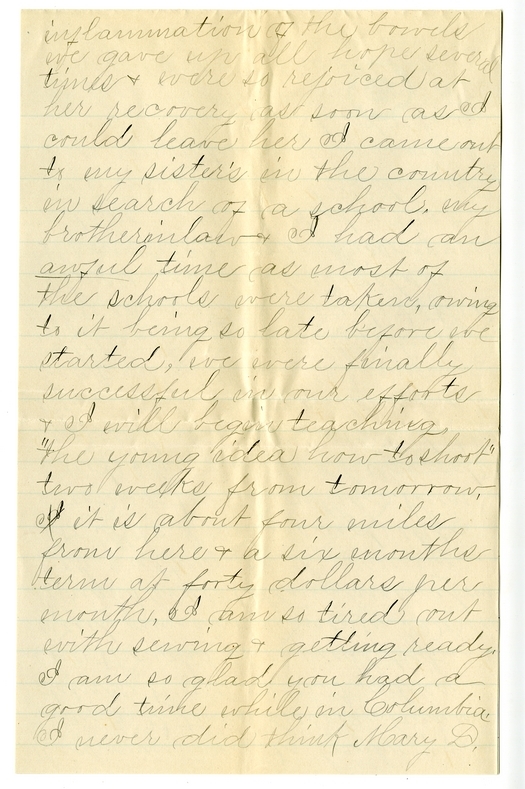 inflammation of the bowels
we gave up all hope several
times & were so rejoiced at
her recovery as soon as I
could leave her I came out
to my sister's in the country
in search of a school. my
brotherinlaw & I had an
awful time as most of
the schools were taken, owing
to it being so late before we
started, we were finally
successful in our efforts
& I will begin teaching
"the young idea how to shoot"
two weeks from tomorrow.
it is about four miles
from here & a six months
term at forty dollars per
month, I am so tired out
with sewing & getting ready.
I am so glad you had a
good time while in Columbia.
I never did think Mary D.